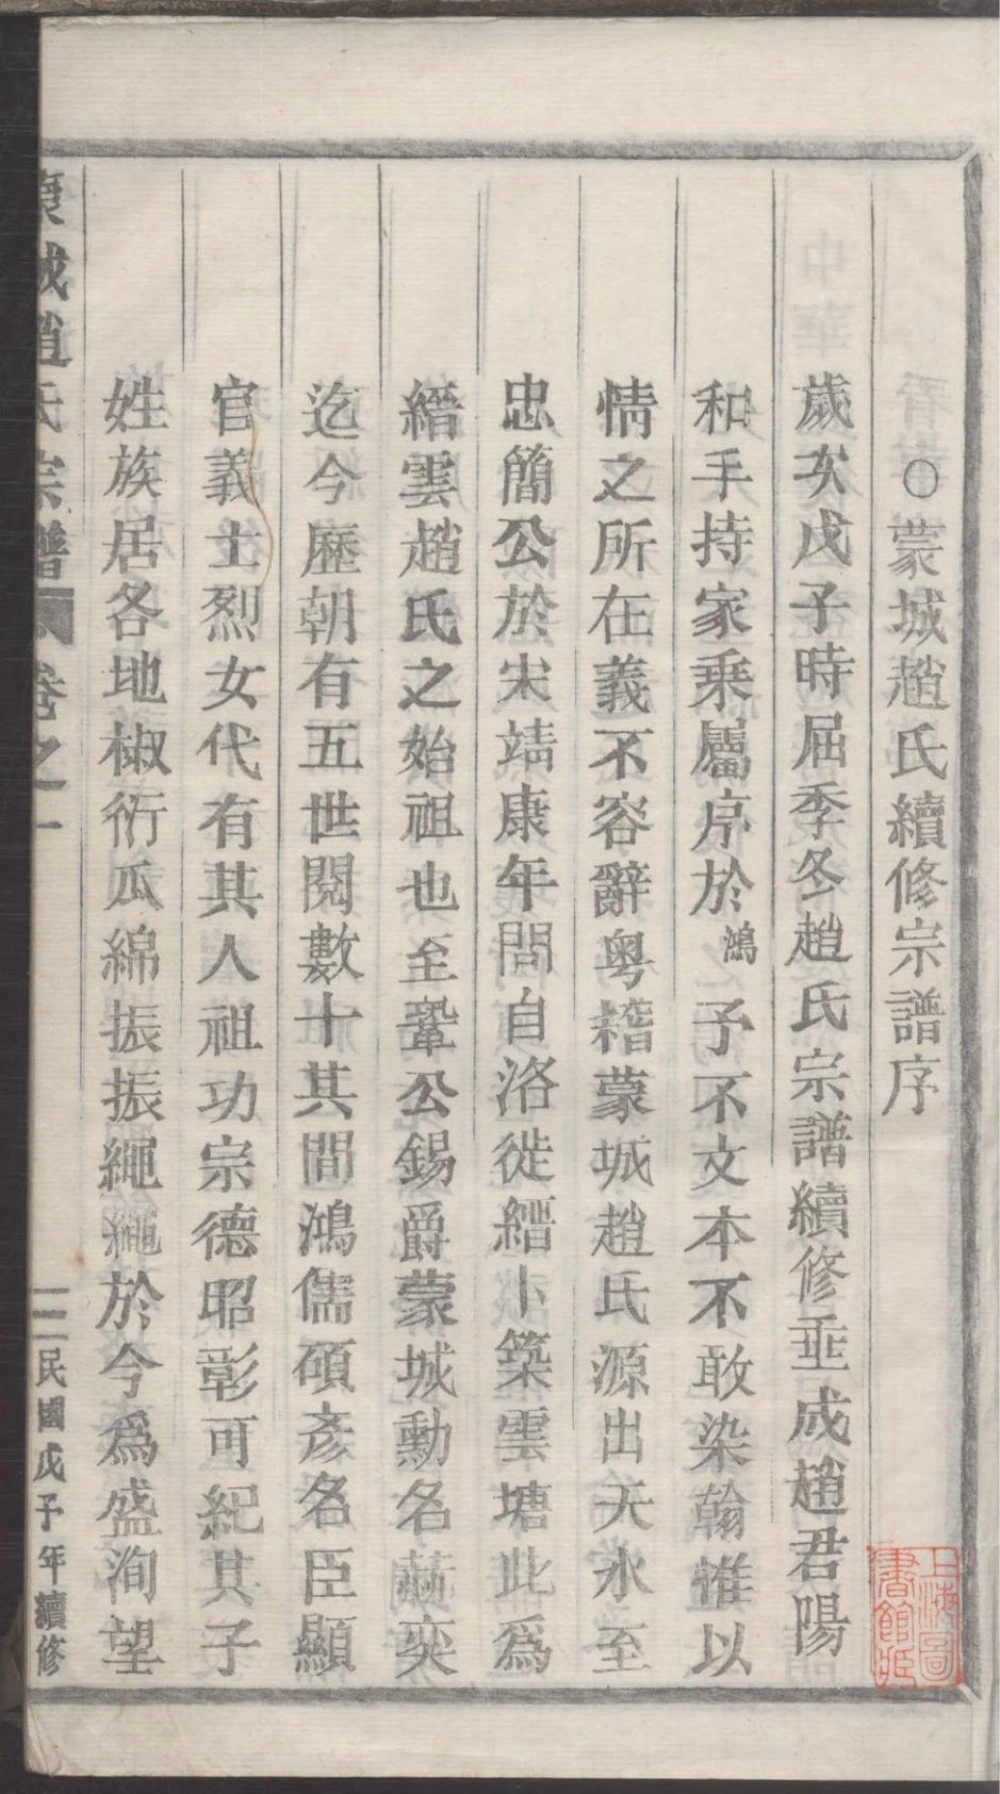 ○蒙城趙氏續修宗譜序
歲次戊子時屆季冬趙氏宗譜續修垂成趙君陽
和手持家乘屬序於鴻予不文本不敢染翰惟以
情之所在義不容辭粵稽蒙城趙氏源出天水至
忠簡公於宋靖康年間自洛徙縉卜築雲塘此爲
縉雲趙氏之始祖也至鞏公錫爵蒙城勳名赫奕
迄今歷朝有五世閱數十其間鴻儒碩彥名臣顯
官義士烈女代有其人祖功宗德昭彰可紀其子
姓族居各地椒衍瓜綿振振繩繩於今爲盛洵望
城趙氏宗譜 卷之一 二 民國戊子年續修
上海圖書館